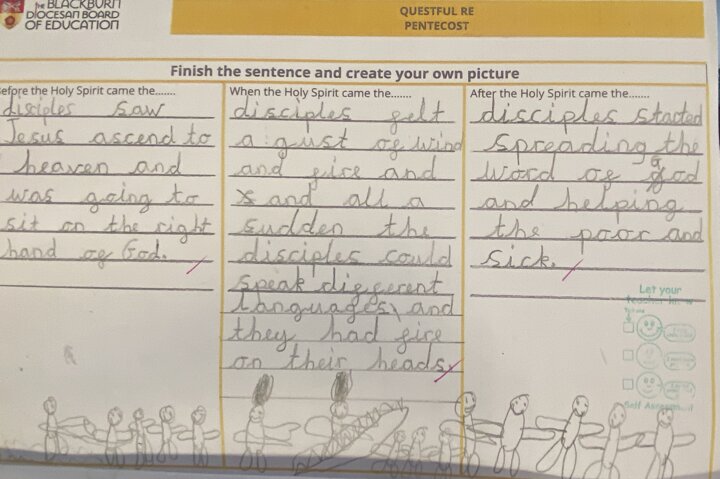 the BLACKBURN
DIOCESAN BOARD
OF EDUCATION
QUESTFUL RE
PENTECOST
Finish the sentence and create your own picture
efore the Holy Spirit came the.......
disciples saw
Jesus ascend to
heaven and
was going to
sit on the right
hand of God.
When the Holy Spirit came the.......
disciples felt
a gust of wind
and fire and
and all a
sudden the
disciples could
speak different
languages, and
they had fire
on their heads.
After the Holy Spirit came the.......
disciples started
spreading the
word of God
and helping
the poor and
sick.
Let your
Self